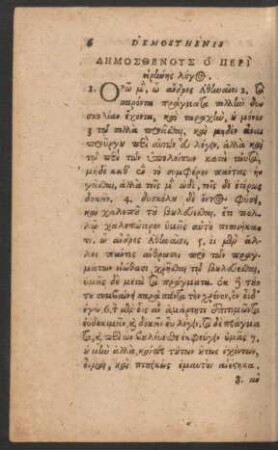 6 DEMOSTHENIS
ΔΗΜΟΣΘΕΝΟΥΣ Ὁ ΠΕΡῚ
εἰρήνης λόγος.
1. Ὁρῶ μὲν, ὦ ἄνδρες Ἀθηναῖοι 2. τὰ
παρόντα πράγματα πολλὴν δυσ
κολίαν ἔχοντα, καὶ ταραχὴν, οὐ μόνον
3 τῷ πολλὰ προεῖσθαι, καὶ μηδὲν εἶναι
προὔργου περὶ αὐτῶν εὖ λέγειν, ἀλλὰ καὶ
περὶ τῶν ὑπολοίπων κατὰ ταὐτὰ,
μηδὲ καθ' ἓν τὸ συμφέρον πάντας ἡ
γεῖσθαι, ἀλλὰ τοῖς μὲν ὡδὶ, τοῖς δὲ ἑτέρως
δοκεῖν. 4. δυσκόλου δ' ὄντος φύσει,
καὶ χαλεποῦ τοῦ βουλεύεσθαι, ἔτι πολ
λῷ χαλεπώτερον ὑμεῖς αὐτὸ πεποιήκα
τε, ὦ ἄνδρες Ἀθηναῖοι, 5. οἱ μὲν ἄλ
λοι πάντες ἄνθρωποι πρὸ τῶν πραγ
μάτων εἰώθασι χρῆσθαι τῷ βουλεύεσθαι,
ὑμεῖς δὲ μετὰ τὰ πράγματα. ἐκ δὲ τού
του συμβαίνει παρὰ πάντα τὸν χρόνον, ὃν οἶδ'
ἐγὼ, 6. τὸν μὲν οἷς ἂν ἁμάρτητε ἐπιτιμῶντα
εὐδοκιμεῖν, καὶ δοκεῖν εὖ λέγειν, τὰ δὲ πράγμα
τα, καὶ περὶ ὧν βουλεύεσθε ἐκφεύγειν ὑμᾶς. 7.
οὐ μὴν ἀλλὰ, καίπερ τούτων οὕτως ἐχόντων,
οἴομαι, καὶ πεπεικὼς ἐμαυτὸν ἀνέστηκα.
8. ἂν